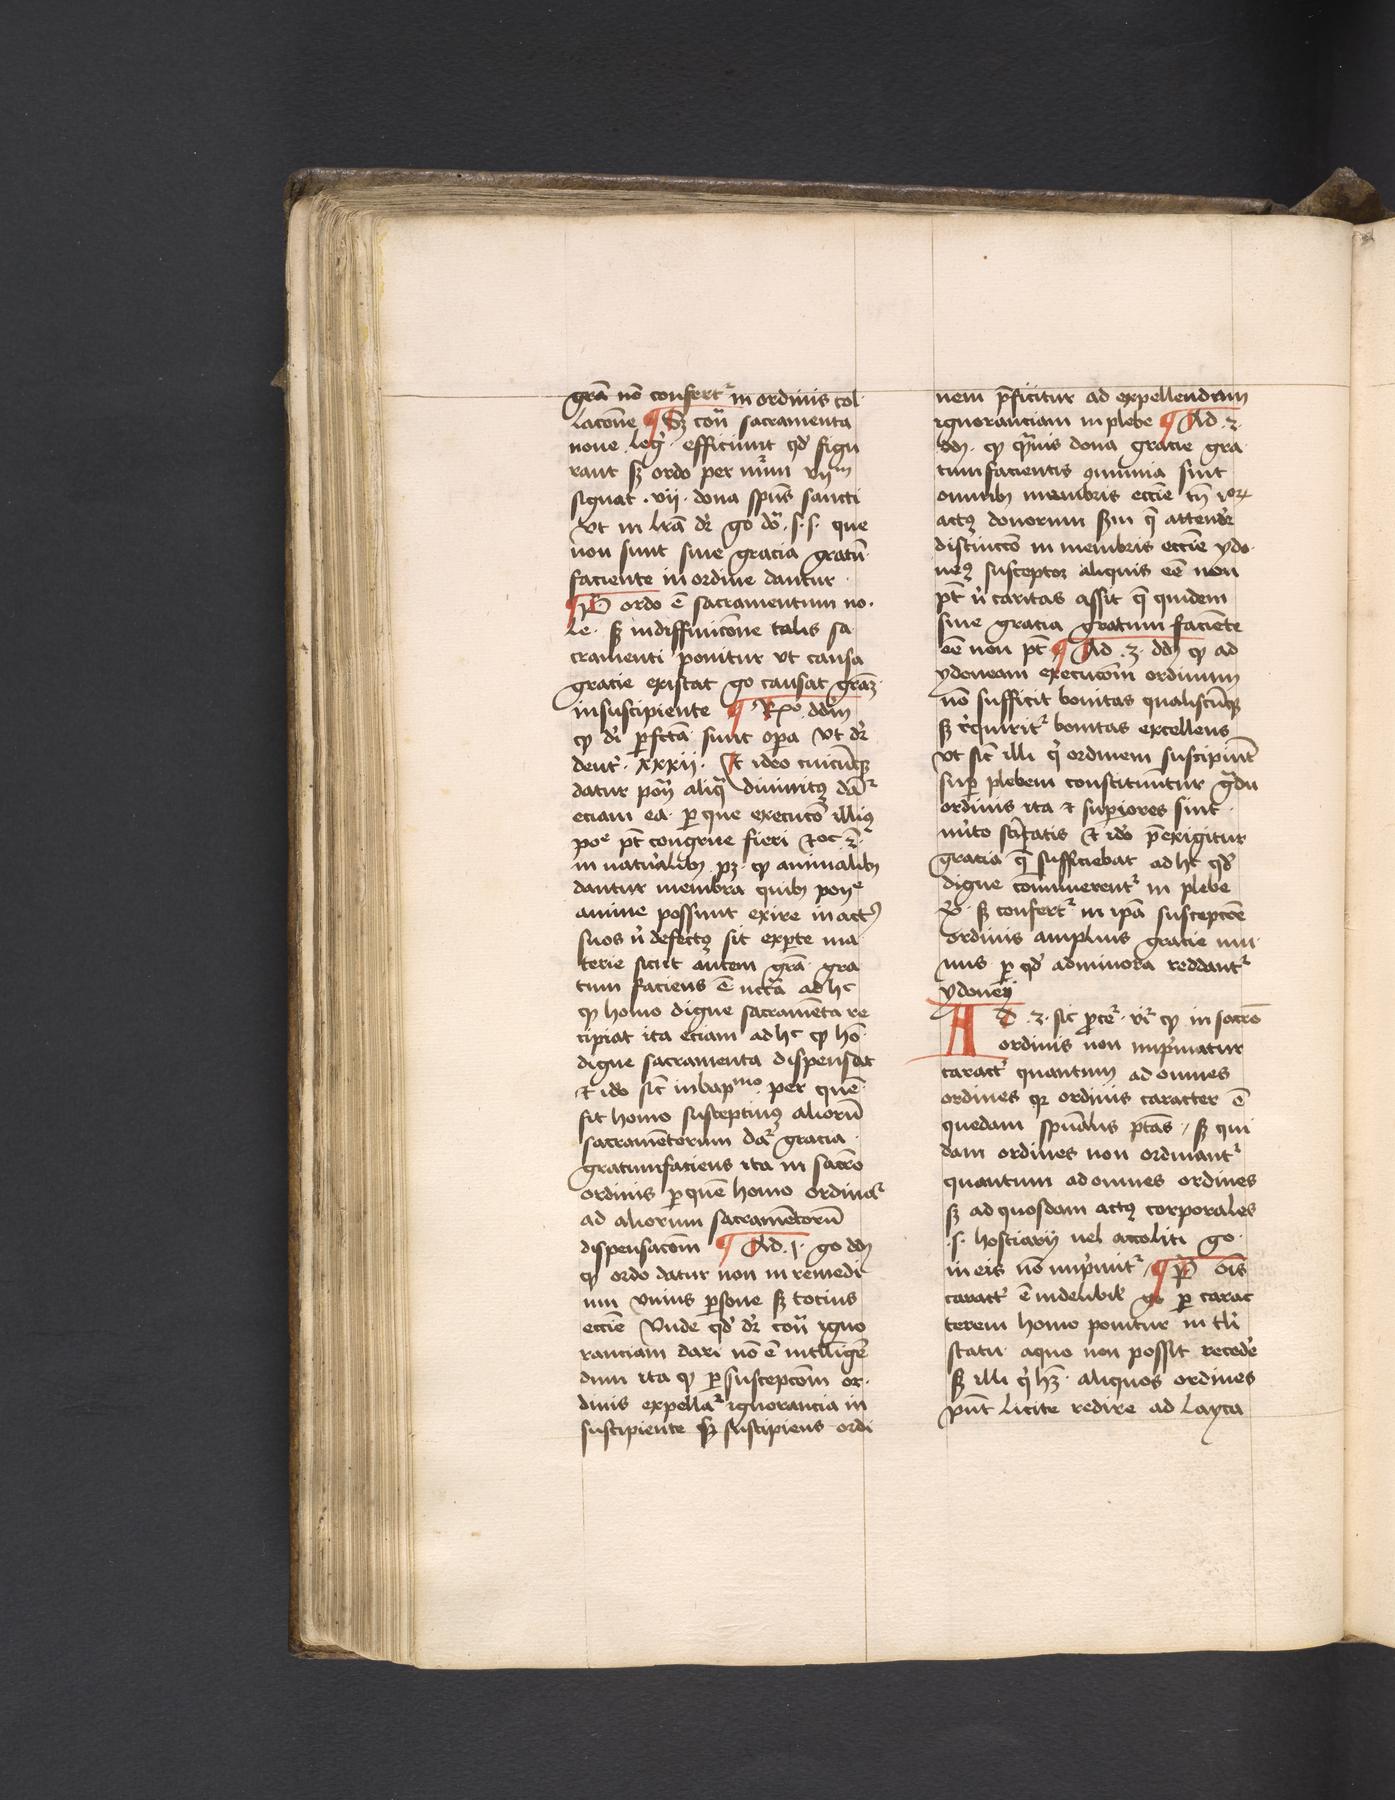 grā nō confert᷑ in ordinis col
lacōne ¶ Sꝫ cōū sacramenta
noue leg̾ · efficiunt qd̾ figu
rant sꝫ ordo per nūm vijm
signat · vii · dona spūs sancti
vt in lr̄a dr̄ go dō · s · s · que
non sunt sine gracia gratū
faciente in ordine dantur ·
¶ P̄ ordo ē sacramentum no ·
le · sꝫ in diffinicōne talis sa
cramenti ponitur vt causa
gracie existat go causat grāꝫ
in suscipiente ¶ Rxo ddm̄
ꝙ di ꝑfcta sunt oꝑa vt dr̄
deut̾ · xxxij · Et ideo cuicūqꝫ
datur pon̄ aliq̄ diuinitꝰ dat᷑
eciam ea · ꝑ que execucō illiꝰ
poe pt̄ congrue fieri
in nat̾alibꝫ pꝫ · ꝙ animalibꝫ
dantur membra quibꝫ pone
anime possunt exire in actꝰ
suos n̾ defectꝰ sit ex ꝑte ma
terie sicut autem grā gra
tum faciens ē nccā ad hc
ꝙ homo digne sacramēta re
cipiat ita eciam ad hc ꝙ hō
digne sacramenta dispensat
et ido sic̄ in bapmo per quē
fit homo susceptiuꝰ aliorū
sacramētorum dat᷑ gracia ·
gratum faciens ita in sacrō
ordinis ꝑ quē homo ordinat᷑
ad aliorum sacramētorū
dispensacōm ¶ Ad · 1 · go ddm̄
ꝙ ordo datur non in remedi
um vnius ꝑsone sꝫ tocius
eccīe Vnde qd̾ dr̄ cōū igno
ranciam dari nō ē intelligē
dum ita ꝙ ꝑ suscepcōm or ·
dinis expellat᷑ ignorancia in
suscipiente sꝫ suscipiens ordi
nem p̄ficitur ad expellendam
ignoranciam in plebe ¶ Ad · 2 ·
ddm̄ ꝙ q̄uis dona gracie gra
tum facientis ꝯmunia sint
omnibꝫ membris eccīe tn̄ ioꝝ
actꝰ donorum scdm q̄ attendr̄
distinccō in membris eccīe ydo ·
neꝰ susceptor aliquis eē non
pt̄ n̾ caritas assit q̄ quidem
sine gracia gratum faciēte
eē non pt̄ ¶ Ad · 3 · ddm̄ ꝙ ad
ydoneam execucōm ordinum
nō sufficit bonitas qualiscūqꝫ
sꝫ r̾quirit᷑ bonitas excellens
vt sic̄ illi q̾ ordinem suscipiūt
suꝑ plebem constituuntur gͣdu
ordinis ita et suꝑiores sint
m̾ito scītatis Et ido p̄exigitur
gracia q̄ sufficiebat ad hc qd̾
digne comnerent᷑ in plebe
xo · sꝫ confert᷑ in ip̄a suscepcōe
ordinis amplius gracie mu
nus ꝑ qd̾ ad minora reddant᷑
ydonej
AD · 3 · sic ꝓce᷑ · vr̄ ꝙ in sacrō
ordinis non imp̾matur
caract̾ quantum ad omnes
ordines qr ordinis caracter ē
quedam spūalis ptās / sꝫ qui
dam ordines non ordinant᷑
quantum ad omnes ordines
sꝫ ad quosdam actꝰ corporales
· s · hostiarij uel accoliti go ·
in eis nō imp̾mit᷑ / ¶ P̄ oīs
caract̾ ē indelibił go ꝑ carac
terem homo ponitur in tli
statu a quo non possit reced̾e
sꝫ illi q̾ hn̄t aliquos ordines
pn̄t licite redire ad layca